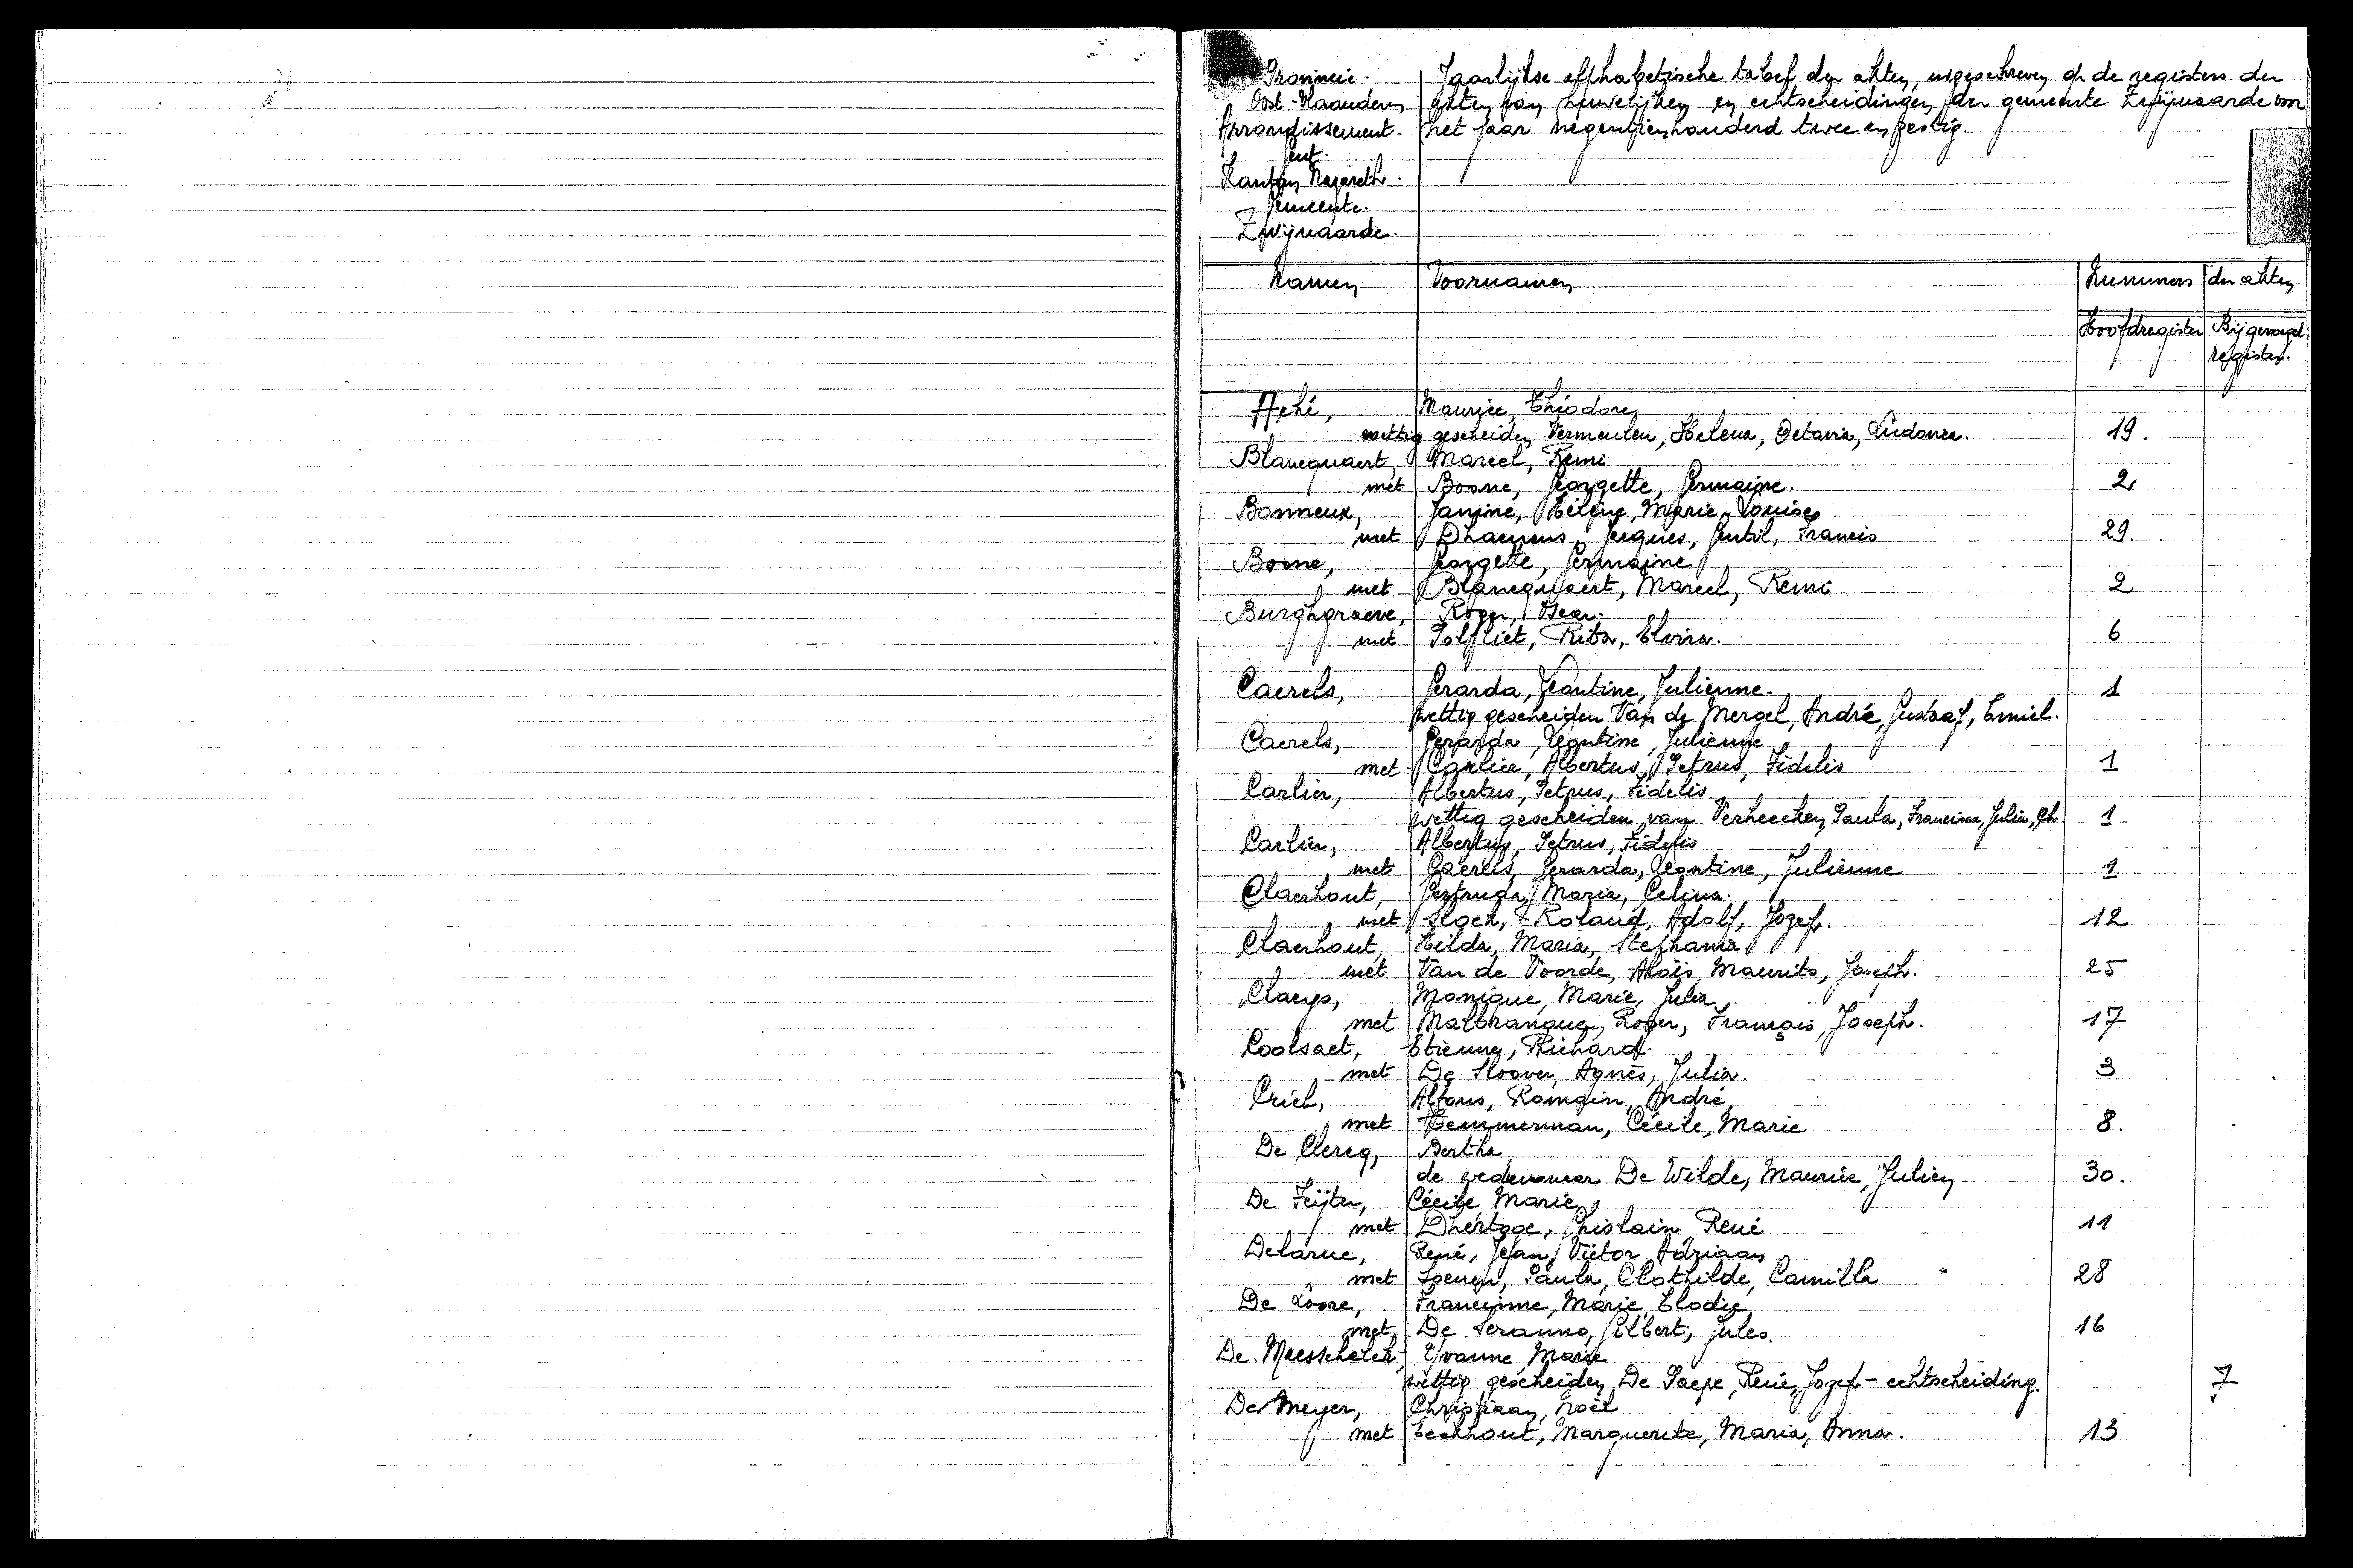 Provincie
Oost-Vlaanderen
Arrondissement
Gent.
Kanton Nazareth.
Gemeente.
Zwijnaarde.
Jaarlijkse alfhabetische tabel der akten, uigeschreven op de registers der
akten van huwelijken en echtscheidingen der gemeente Zwijnaarde voor
het jaar negentienhonderd twee en zestig.
Namen Voornamen Nummers der akten
Hoofdregister Bijgevoegd
register.
Maurice, Théodore,
wettig gescheiden Vermeulen, Helena, Octavia, Ludovica. 19.
Blancquaert, Marcel, Remi
met Boone, Georgette, Germaine. 2
Bonneux, Janine, Hélène, Marie-Louise
met Dhaenens, Jacques, Gentil, Francis 29.
Boone, Georgette, Germaine
met Blancquaert, Marcel, Remi 2
Burghgraeve, Roger, Oscar.
met Polfliet, Rita, Elvira. 6
Caerels, Gerarda, Leontine, Julienne. 1
wettig gescheiden Van de Mergel, André, Gustaaf, Emiel.
Caerels, Gerarda, Leontine, Julienne
met Carlier, Albertus, Petrus, Fidelis 1
Carlier, Albertus, Petrus, Fidelis
wettig gescheiden van Verheecken, Paula, Francisca, Julia, Gh. 1
Carlier, Albertus, Petrus, Fidelis
met Caerels, Gerarda, Leontine, Julienne 1
Claerhout, Gertruda, Maria, Celina.
met Roland, Adolf, Jozef. 12
Claerhout, Hilda, Maria, Stephania
met Van de Voorde, Aloïs, Maurits, Joseph. 25
Claeys, Monique, Marie, Julia
met Malbrancq, Roger, François, Joseph. 17
Coolsaet, Etienne, Richard.
met De Sloover, Agnès, Julia. 3
Criel, Alfons, Romain, André,
met Temmerman, Cécile, Marie 8.
De Clercq, Berthe,
de weduwnaar De Wilde, Maurice, Julien 30.
De Feijter, Cécile Marie,
met Dhertoge, Ghislain, René 11
Delarue, René, Jean, Victor, Adriaan
met Loenen, Paula, Clothilde, Camilla 28
De Loore, Francinne, Marie, Elodie,
met De Seranno, Gilbert, Jules. 16
De Meesschalck, Yvonne, Marie
wettig gescheiden De Paepe, René, Jozef - echtscheiding. 7
De Meyer, Christiaan, Noël
met Eeckhout, Marguerite, Maria, Anna. 13